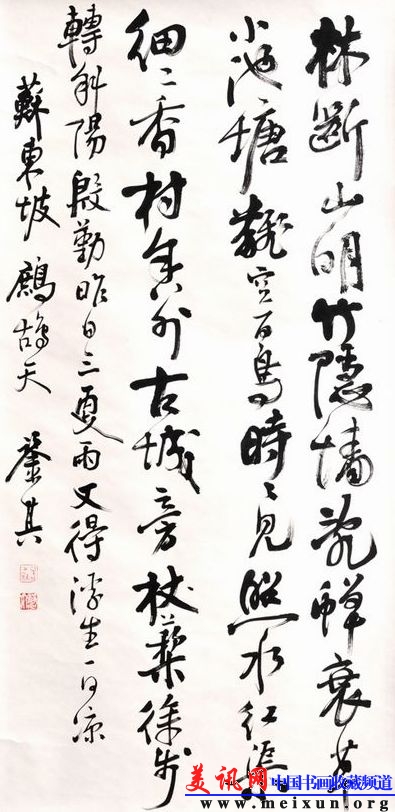 林斷山明竹隱墻亂蟬衰草
小池塘翻空百鳥時々見照水紅蕖
細々香村舍外古城旁杖藜徐步
轉斜陽殷勤昨日三更雨又得浮生一日涼
蘇東坡鷓鴣天
美讯网 中国书画收藏频道
www.meixun1.org